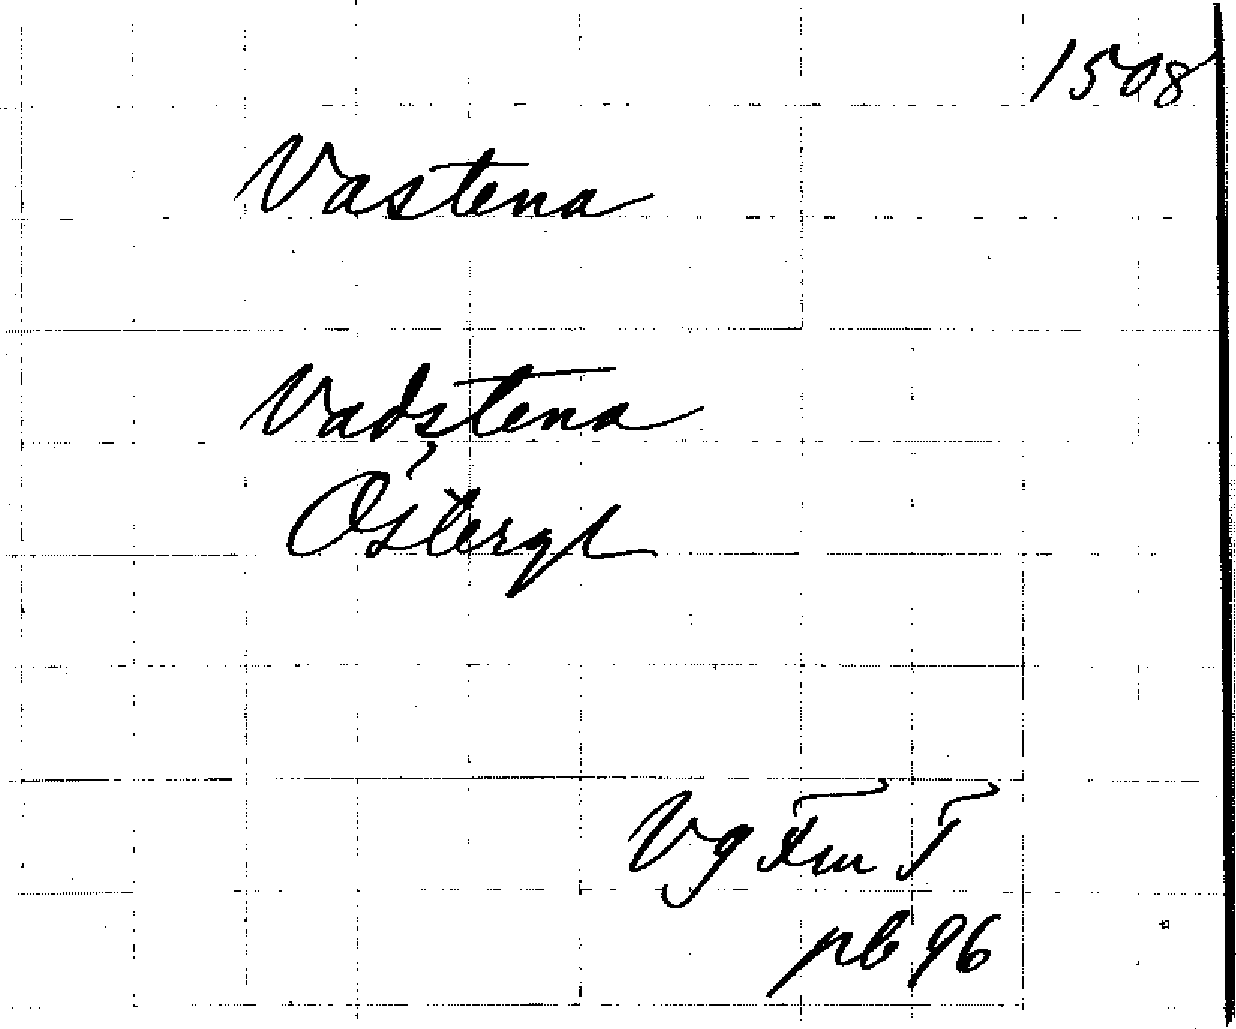 1508
Vastena
Vadstena
Östergl
Vg Fm T
pb 96